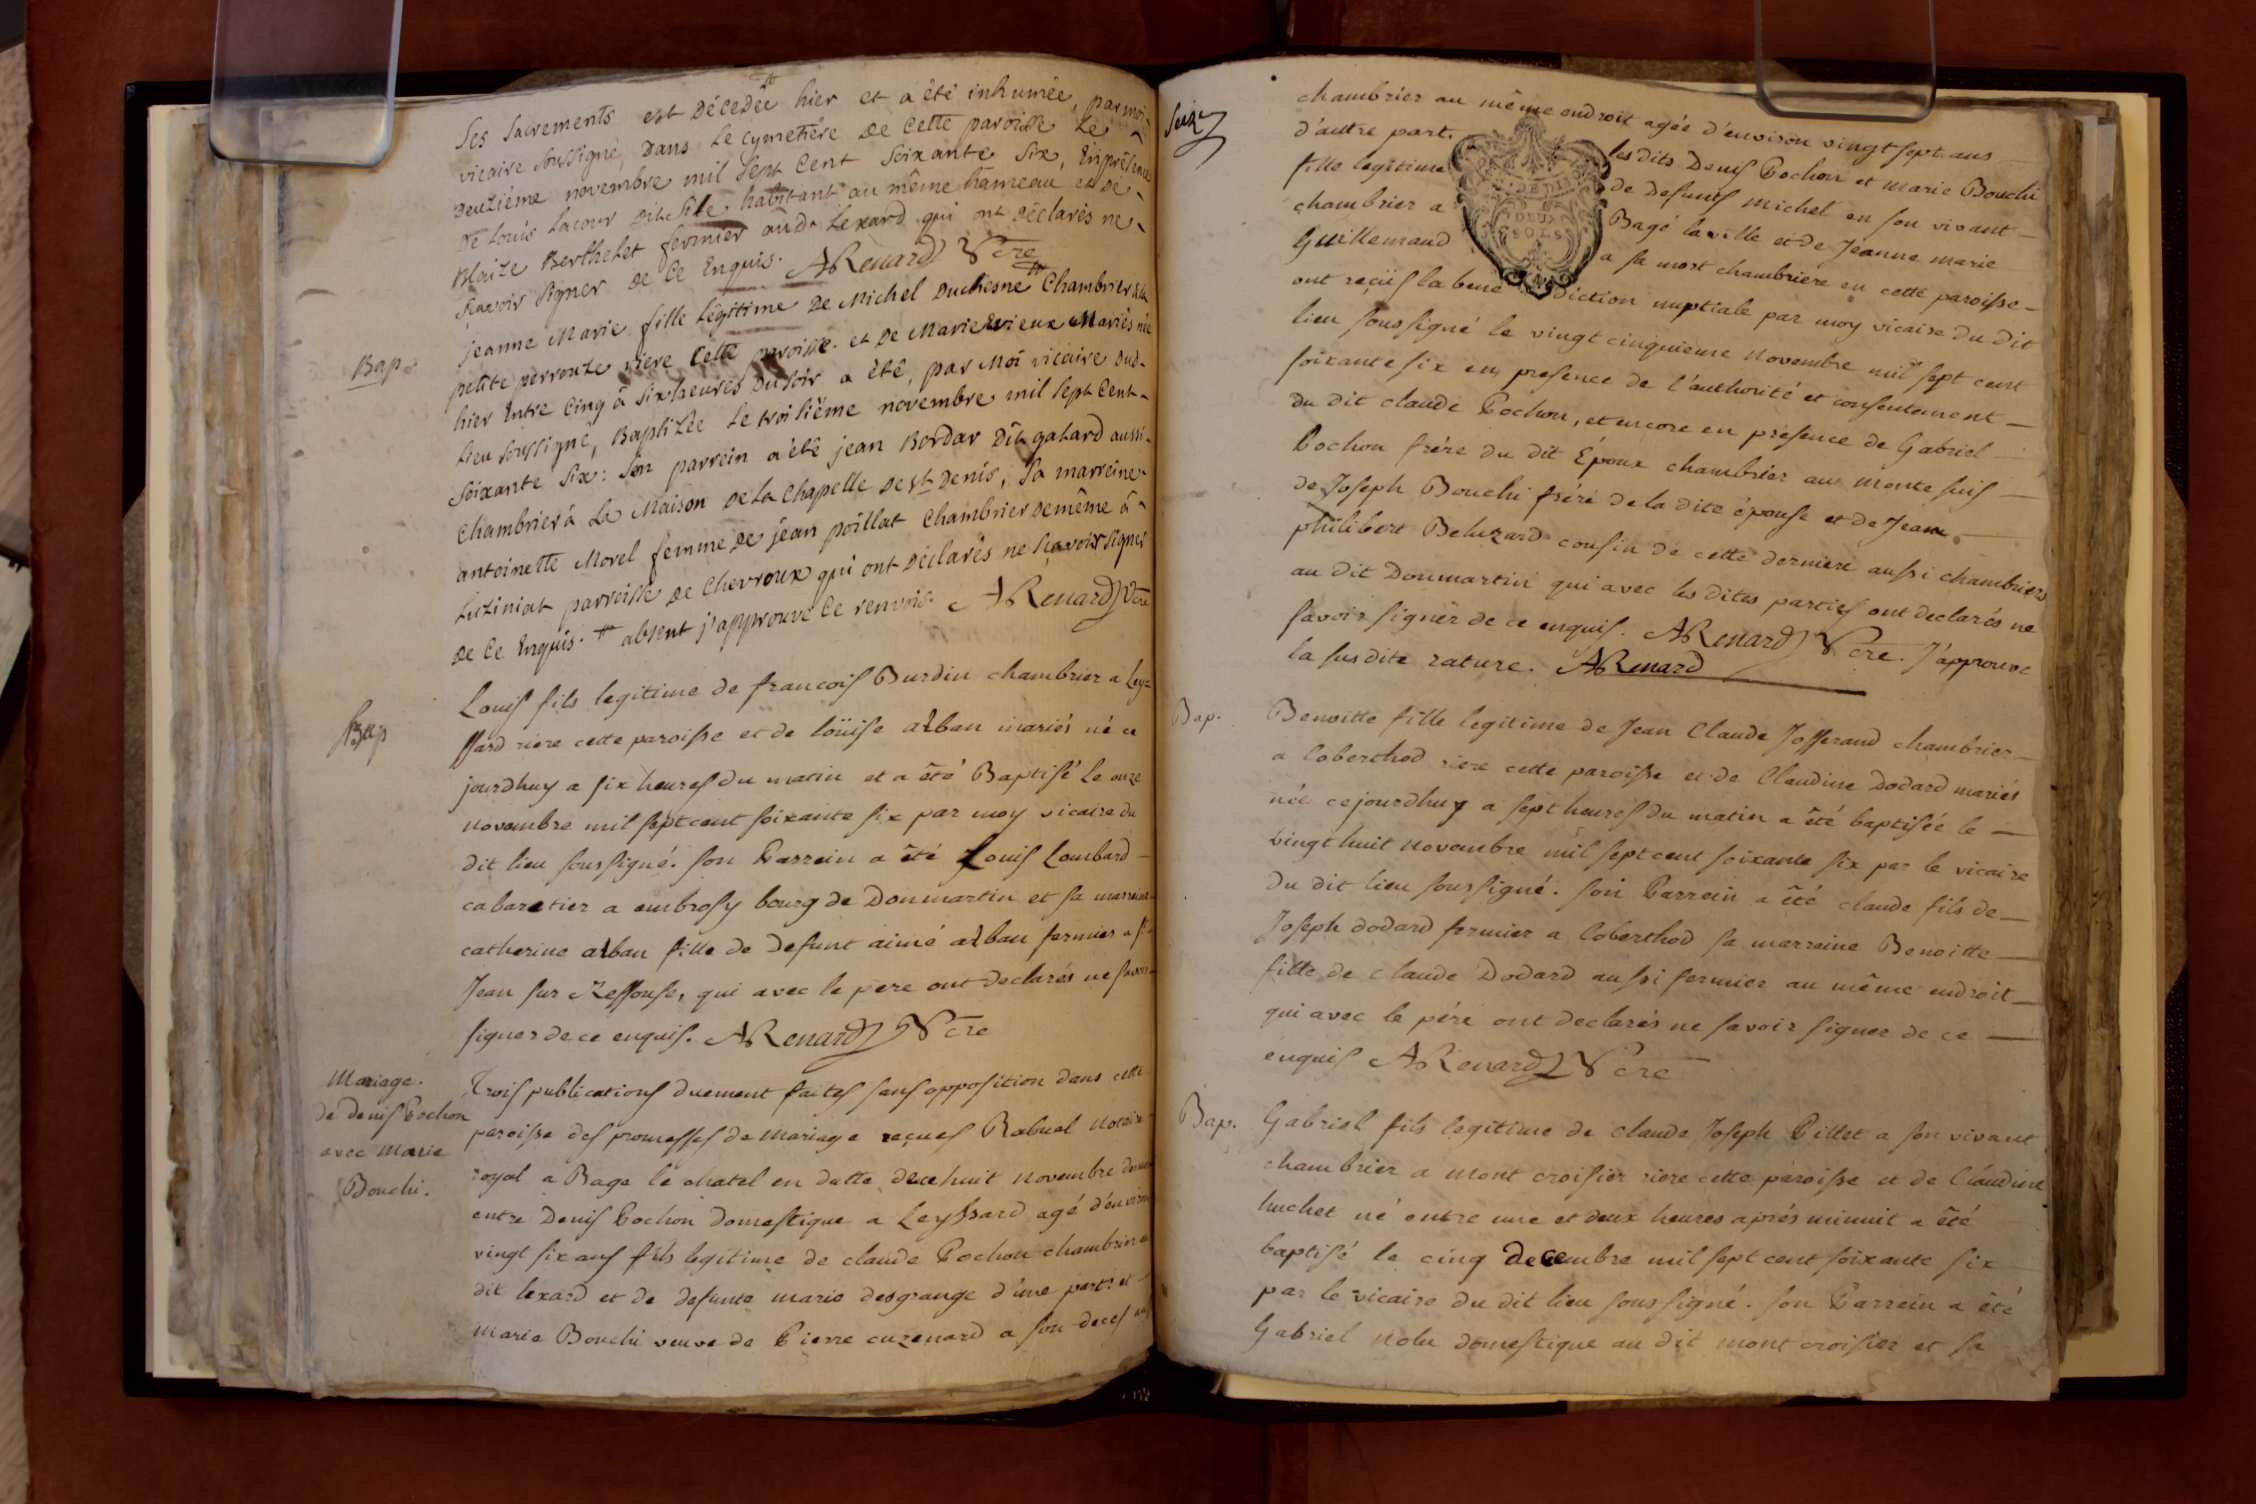 ses sacrements est décedée hier et a été inhumée, par moi
vicaire soussigné, dans le cymetiére de cette paroisse le
deuzième novembre mil sept cent soixante six, en présence
de Louis Lacour dit habitant au même hameau et de
Blaize Berthelet fermier aud. Lexard qui ont déclarés ne
sçavoir signer de ce enquis. ARenard Vcre
Bap.
jeanne Marie fille légitime de Michel Duchesne chambrier à la
petite perrouze riere cette paroisse. et de Marie Vieux Mariés née
hier entre cinq à six heures du soir a été, par Moi vicaire dud.
lieu soussigné, Baptizée le troisiéme novembre mil sept cent
soixante six: son parrein a été jean Bordar dit galard aussi
chambrier à la Maison de la chapelle de st Denis, sa marreine
antoinette Morel femme de jean poillat chambrier de même à
Luziniat parroisse de Chevroux qui ont déclarés ne sçavoir signer
de ce enquis. absent j'approuve ce renvois. ARenard Vcre
Bap
Louis fils legitime de francois Burdin chambrier a Ley=
ssard riere cette paroisse et de loüise alban mariés né ce
jourdhuy a six heures du matin et a été Baptisé le onze
novembre mil sept cent soixante six par moy vicaire du
dit lieu soussigné. son Parrein a été Louis Lombard
cabaretier a embrosy bourg de Donmartin et sa marreine
catherine alban fille de defunt aimé alban fermier a st
Jean sur Ressouse, qui avec le pere ont declarés ne savoir
signer de ce enquis. ARenard Vcre
Mariage.
de denis Pochon
avec Marie
Bouchi.
Trois publications duement faites sans opposition dans cette
paroisse des promesses de Mariage reçues Rabuel Notaire
royal a Bage le chatel en datte du huit novembre dernier
entre Denis Pochon domestique a Leyssard agé d'environ
vingt six ans fils legitime de claude Pochon chambrier au
dit lexard et de defunte marie desgrange d'une part et
Marie Bouchi veuve de Pierre cuzenard a son deces
Seize
chambrier au même endroit agée d'environ vingt sept ans
d'autre part. les dits Denis Pochon et Marie Bouchi
fille legitime de defunts Michel en son vivant
chambrier a Bagé la ville et de Jeanne marie
Guillemaud a sa mort chambriere en cette paroisse
DEUX
SOLS
ont reçüs la benediction nuptiale par moy vicaire du dit
lieu soussigné le vingt cinquieme Novembre mil sept cent
soixante six en presence de l'authorité et consentement
du dit claude Pochon, et encore en présence de Gabriel
Pochon frére du dit Époux chambrier au monte suif
de Joseph Bouchi frére de la dite épouse et de Jean
philibert Beluzard cousin de cette derniere aussi chambriers
au dit Donmartin qui avec les dites parties ont declarés ne
savoir signer de ce enquis. ARenard Vcre. J'approuve
la susdite rature. ARenard
Bap.
Benoitte fille legitime de Jean Claude Josserand chambrier
a loberthod riere cette paroisse et de Claudine Dodard mariés
née cejourdhuy a sept heures du matin a été baptisée le
vingt huit Novembre mil sept cent soixante six par le vicaire
du dit lieu soussigné. son Parrein a été claude fils de
Joseph dodard fermier a loberthod sa marreine Benoitte
fille de claude Dodard aussi fermier au même endroit
qui avec le pére ont declarés ne savoir signer de ce
enquis ARenard Vcre
Bap.
Gabriel fils legitime de claude Joseph Pillet a son vivant
chambrier a mont croisier riere cette paroisse et de Claudine
huchet né entre une et deux heures aprés minuit a été
baptisé le cinq decembre mil sept cent soixante six
par le vicaire du dit lieu soussigné. son Parrein a été
Gabriel Nolu domestique au dit mont croisier et sa